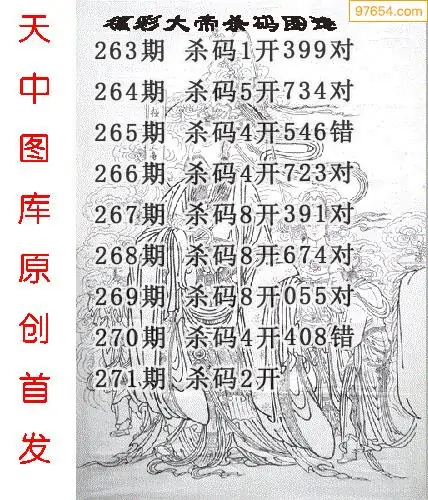 97654.com
福彩大帝杀码图
天中图库原创首发
263期 杀码1开399对
264期 杀码5开734对
265期 杀码4开546错
266期 杀码4开723对
267期 杀码8开391对
268期 杀码8开674对
269期 杀码8开055对
270期 杀码4开408错
271期 杀码2开